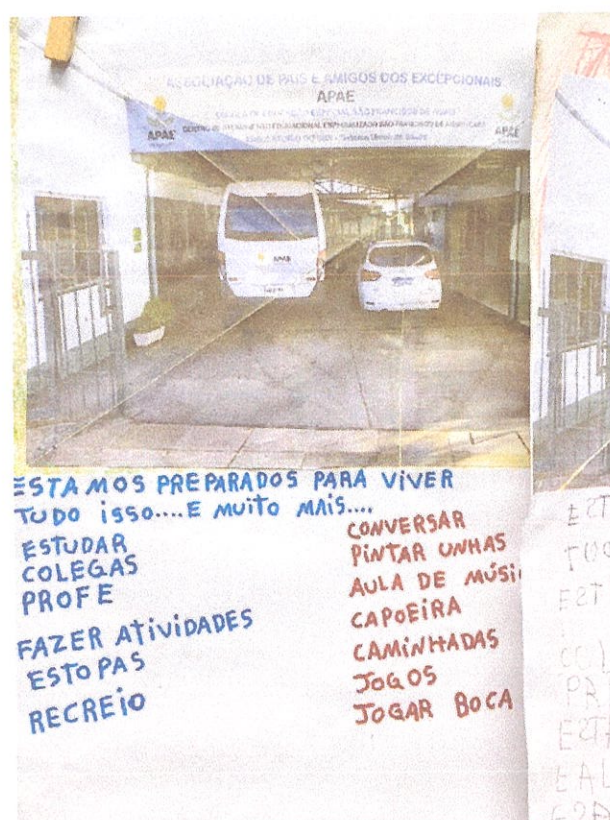 ASSOCIAÇÃO DE PAIS E AMIGOS DOS EXCEPCIONAIS
APAE
ESCOLA DE EDUCAÇÃO ESPECIAL SÃO FRANCISCO DE ASSIS
APAE
APAE
APAE
ESTAMOS PREPARADOS PARA VIVER
TUDO ISSO....E MUITO MAIS....
ESTUDAR
COLEGAS
PROFE
FAZER ATIVIDADES
ESTOPAS
RECREIO
CONVERSAR
PINTAR UNHAS
AULA DE MÚSI
CAPOEIRA
CAMINHADAS
JOGOS
JOGAR BOCA